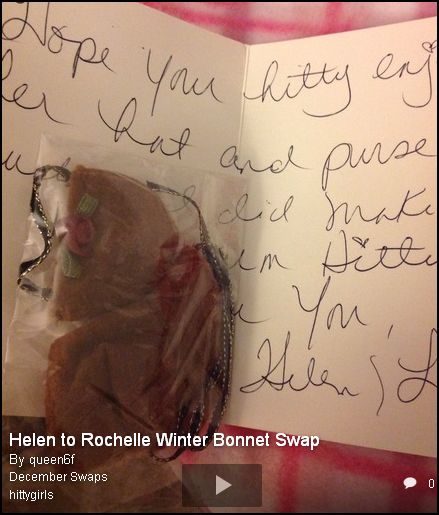 Hope your hitty enj
er hat and purse
did mak
Hitt
You,
Helen & L
Helen to Rochelle Winter Bonnet Swap
By queen6f
December Swaps
hittygirls
0